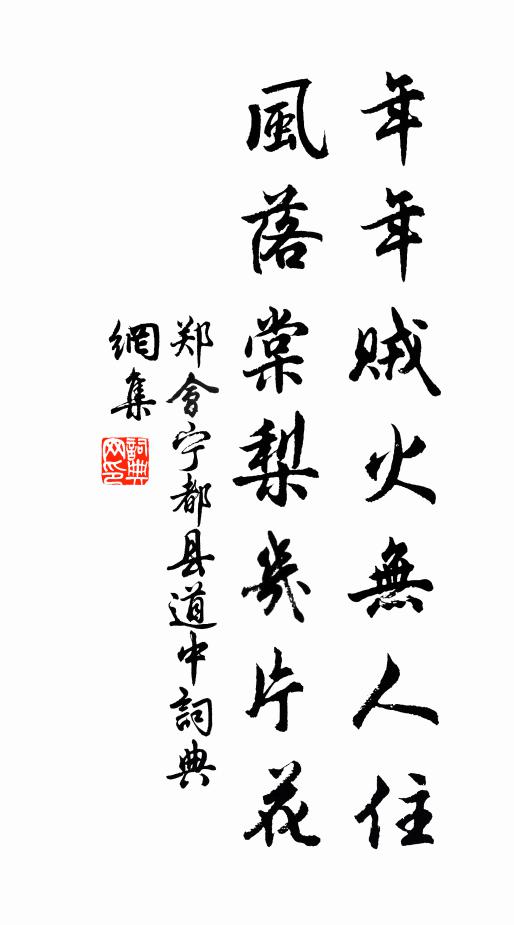 年年賊火無人住
風落棠梨幾片花
郑會宁都县道中詞典
網集
詞典网印